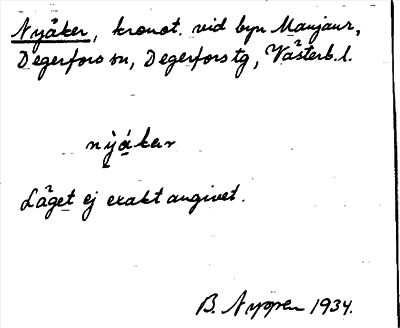 Nyåker, kronot. vid byn Manjaur,
Degerfors sn, Degerfors tg, Västerb. l.
nỳ̠á̠ker
Läget ej exakt angivet.
B. Nyman 1934.